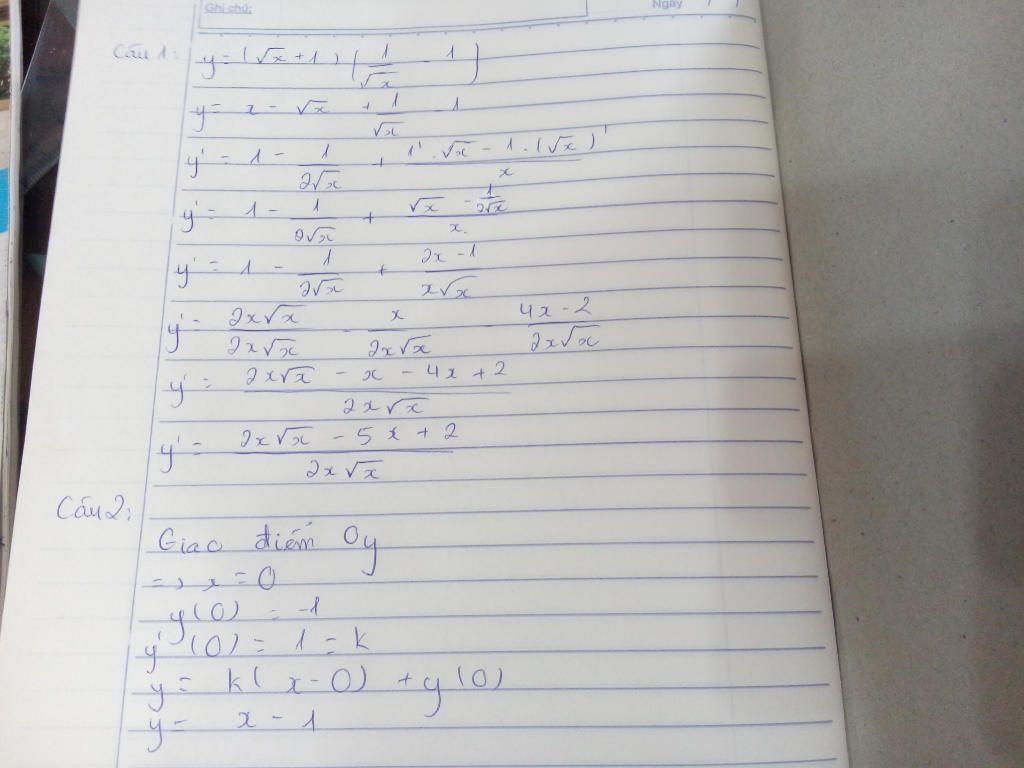 Ghi chú: Ngày / /
Câu 1: y = (√x + 1) (1/√x - 1)
y = x - √x + 1/√x - 1
y' = 1 - 1/2√x + (1'.√x - 1.(√x)')/x
y' = 1 - 1/2√x + (√x - 1/2√x)/x.
y' = 1 - 1/2√x + (2x - 1)/x√x
y' = 2x√x/2x√x - x/2x√x - (4x - 2)/2x√x
y' = (2x√x - x - 4x + 2)/2x√x
y' = (2x√x - 5x + 2)/2x√x
Câu 2:
Giao điểm Oy
=> x = 0
y(0) = -1
y'(0) = 1 = k
y = k(x - 0) + y(0)
y = x - 1